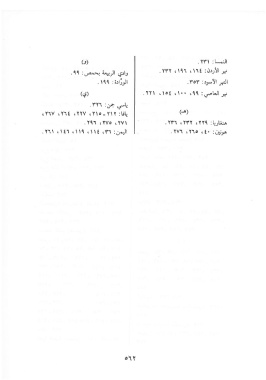 النمسا: ٢٣١.
نهر الأردن: ١٦٤، ١٩٦، ٢٣٢.
النهر الأسود: ٣٥٣.
نهر العاصي: ٩٩، ١٠٠، ١٥٤، ٢٢١.
(هـ)
هنغاريا: ٢٢٩، ٢٣٢، ٢٣٦.
هونين: ٤٠، ٢٦٥، ٢٧٦.
(و)
وادي الربيعة بحمص: ٩٩.
الورّادة: ١٩٩.
(ي)
ياسي جمن: ٣٢٦.
يافا: ٢١٢، ٢١٥، ٢٢٧، ٢٦٤، ٢٦٧،
٢٧١، ٢٧٥، ٢٩٦.
اليمن: ٣٦، ١١٤، ١١٩، ١٤٦، ٢٦١.
٥٦٢